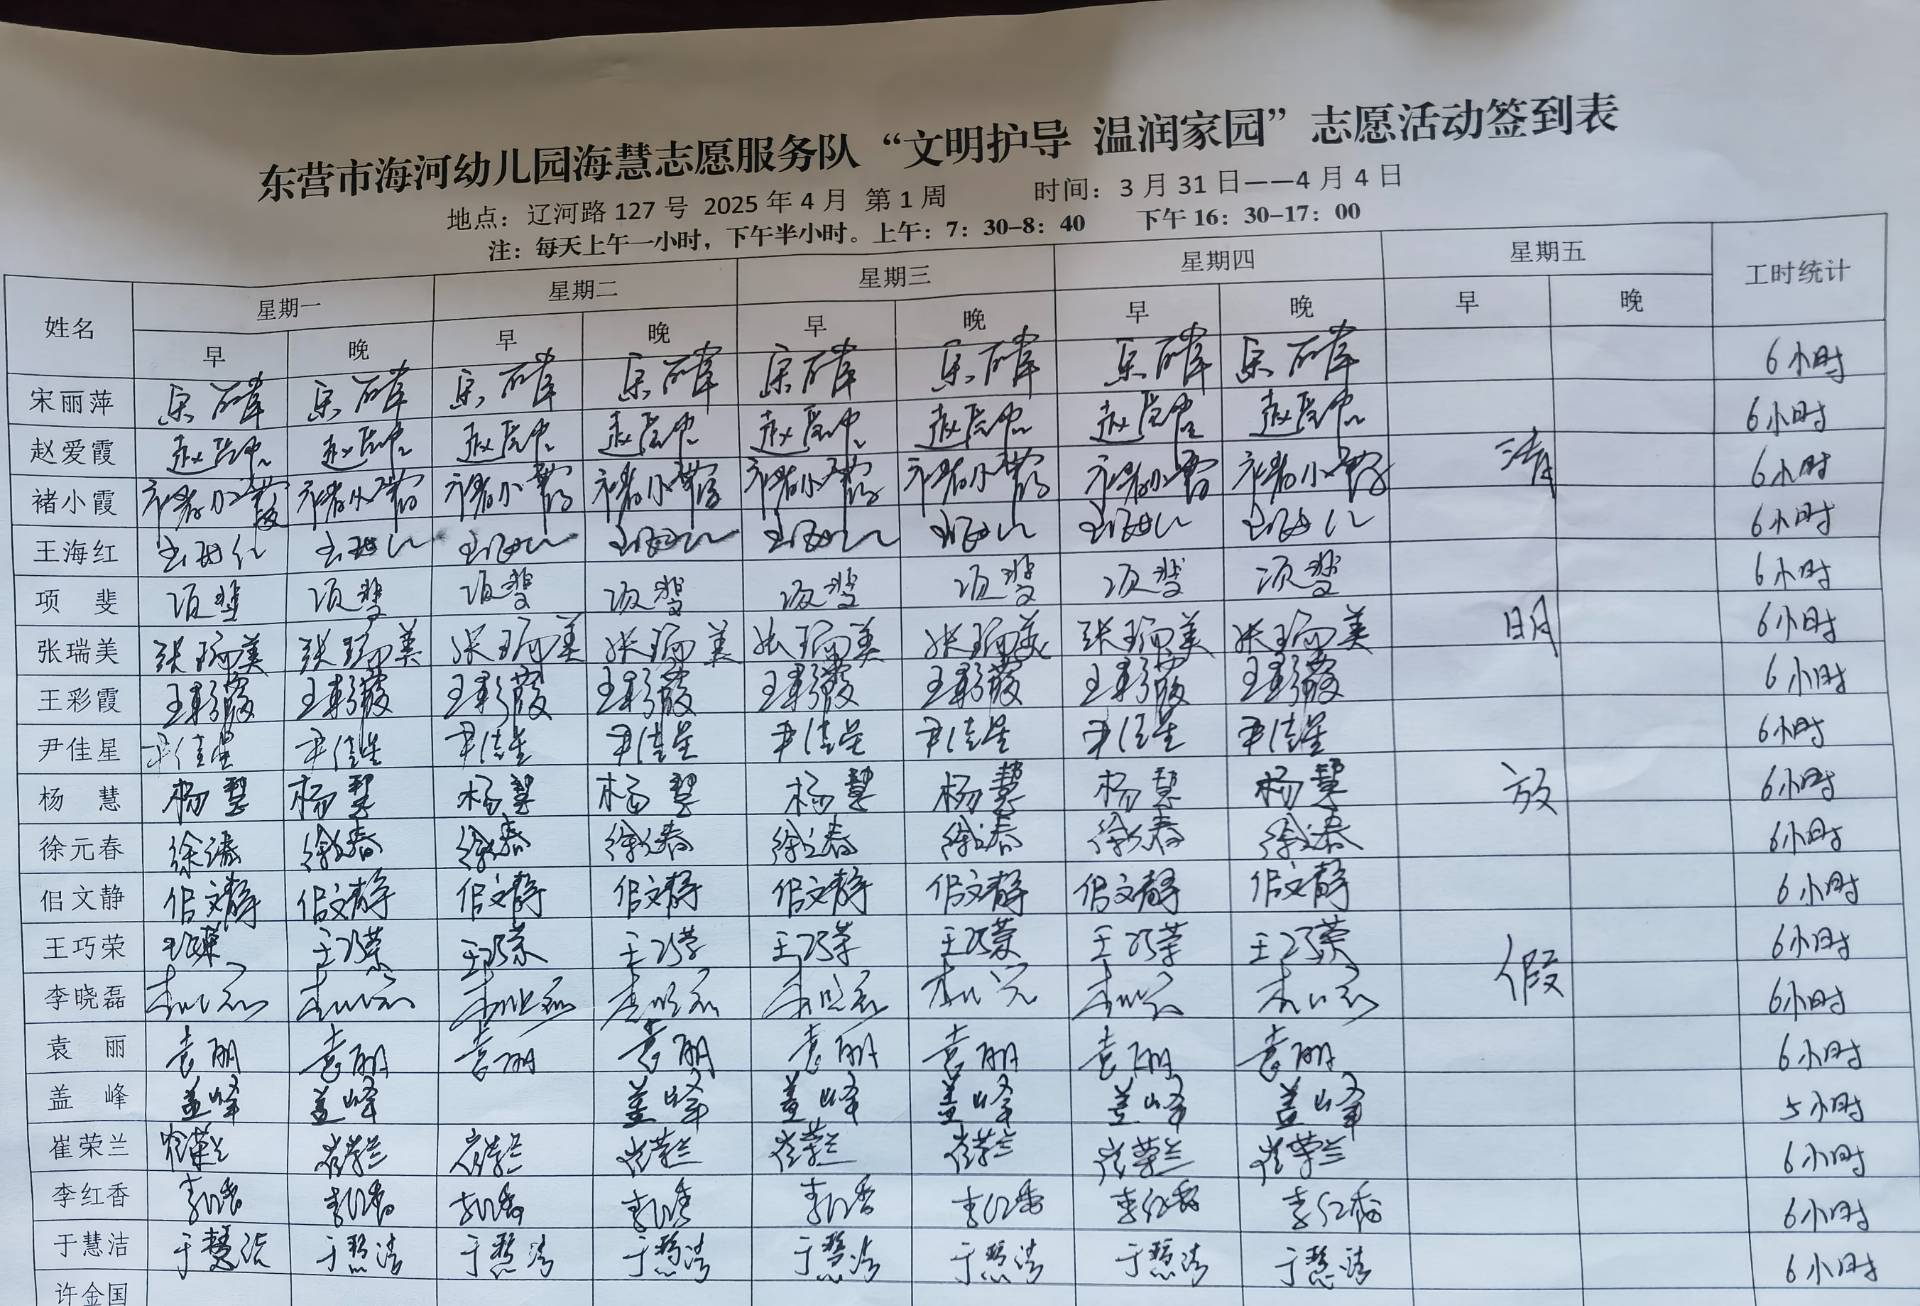 东营市海河幼儿园海慧志愿服务队“文明护导 温润家园”志愿活动签到表
地点：辽河路 127 号 2025 年 4 月 第 1 周 时间：3 月 31 日——4 月 4 日
注：每天上午一小时，下午半小时。上午：7：30-8：40 下午 16：30-17：00
姓名 星期一 星期二 星期三 星期四 星期五 工时统计
早 晚 早 晚 早 晚 早 晚 早 晚
宋丽萍 6小时
赵爱霞 6小时
褚小霞 褚小霞 褚小霞 褚小霞 褚小霞 褚小霞 褚小霞 褚小霞 褚小霞 清 6小时
王海红 王海红 王海红 王海红 王海红 王海红 王海红 王海红 王海红 6小时
项 斐 项斐 项斐 项斐 项斐 项斐 项斐 项斐 项斐 6小时
张瑞美 张瑞美 张瑞美 张瑞美 张瑞美 张瑞美 张瑞美 张瑞美 张瑞美 明 6小时
王彩霞 王彩霞 王彩霞 王彩霞 王彩霞 王彩霞 王彩霞 王彩霞 王彩霞 6小时
尹佳星 尹佳星 尹佳星 尹佳星 尹佳星 尹佳星 尹佳星 尹佳星 尹佳星 6小时
杨 慧 杨慧 杨慧 杨慧 杨慧 杨慧 杨慧 杨慧 杨慧 放 6小时
徐元春 徐元春 徐元春 徐元春 徐元春 徐元春 徐元春 徐元春 徐元春 6小时
佀文静 佀文静 佀文静 佀文静 佀文静 佀文静 佀文静 佀文静 佀文静 6小时
王巧荣 王巧荣 王巧荣 王巧荣 王巧荣 王巧荣 王巧荣 王巧荣 王巧荣 假 6小时
李晓磊 6小时
袁 丽 袁丽 袁丽 袁丽 袁丽 袁丽 袁丽 袁丽 袁丽 6小时
盖 峰 盖峰 盖峰 盖峰 盖峰 盖峰 盖峰 盖峰 5小时
崔荣兰 崔荣兰 崔荣兰 崔荣兰 崔荣兰 崔荣兰 崔荣兰 崔荣兰 崔荣兰 6小时
李红香 李红香 李红香 李红香 李红香 李红香 李红香 李红香 李红香 6小时
于慧洁 于慧洁 于慧洁 于慧洁 于慧洁 于慧洁 于慧洁 于慧洁 于慧洁 6小时
许金国